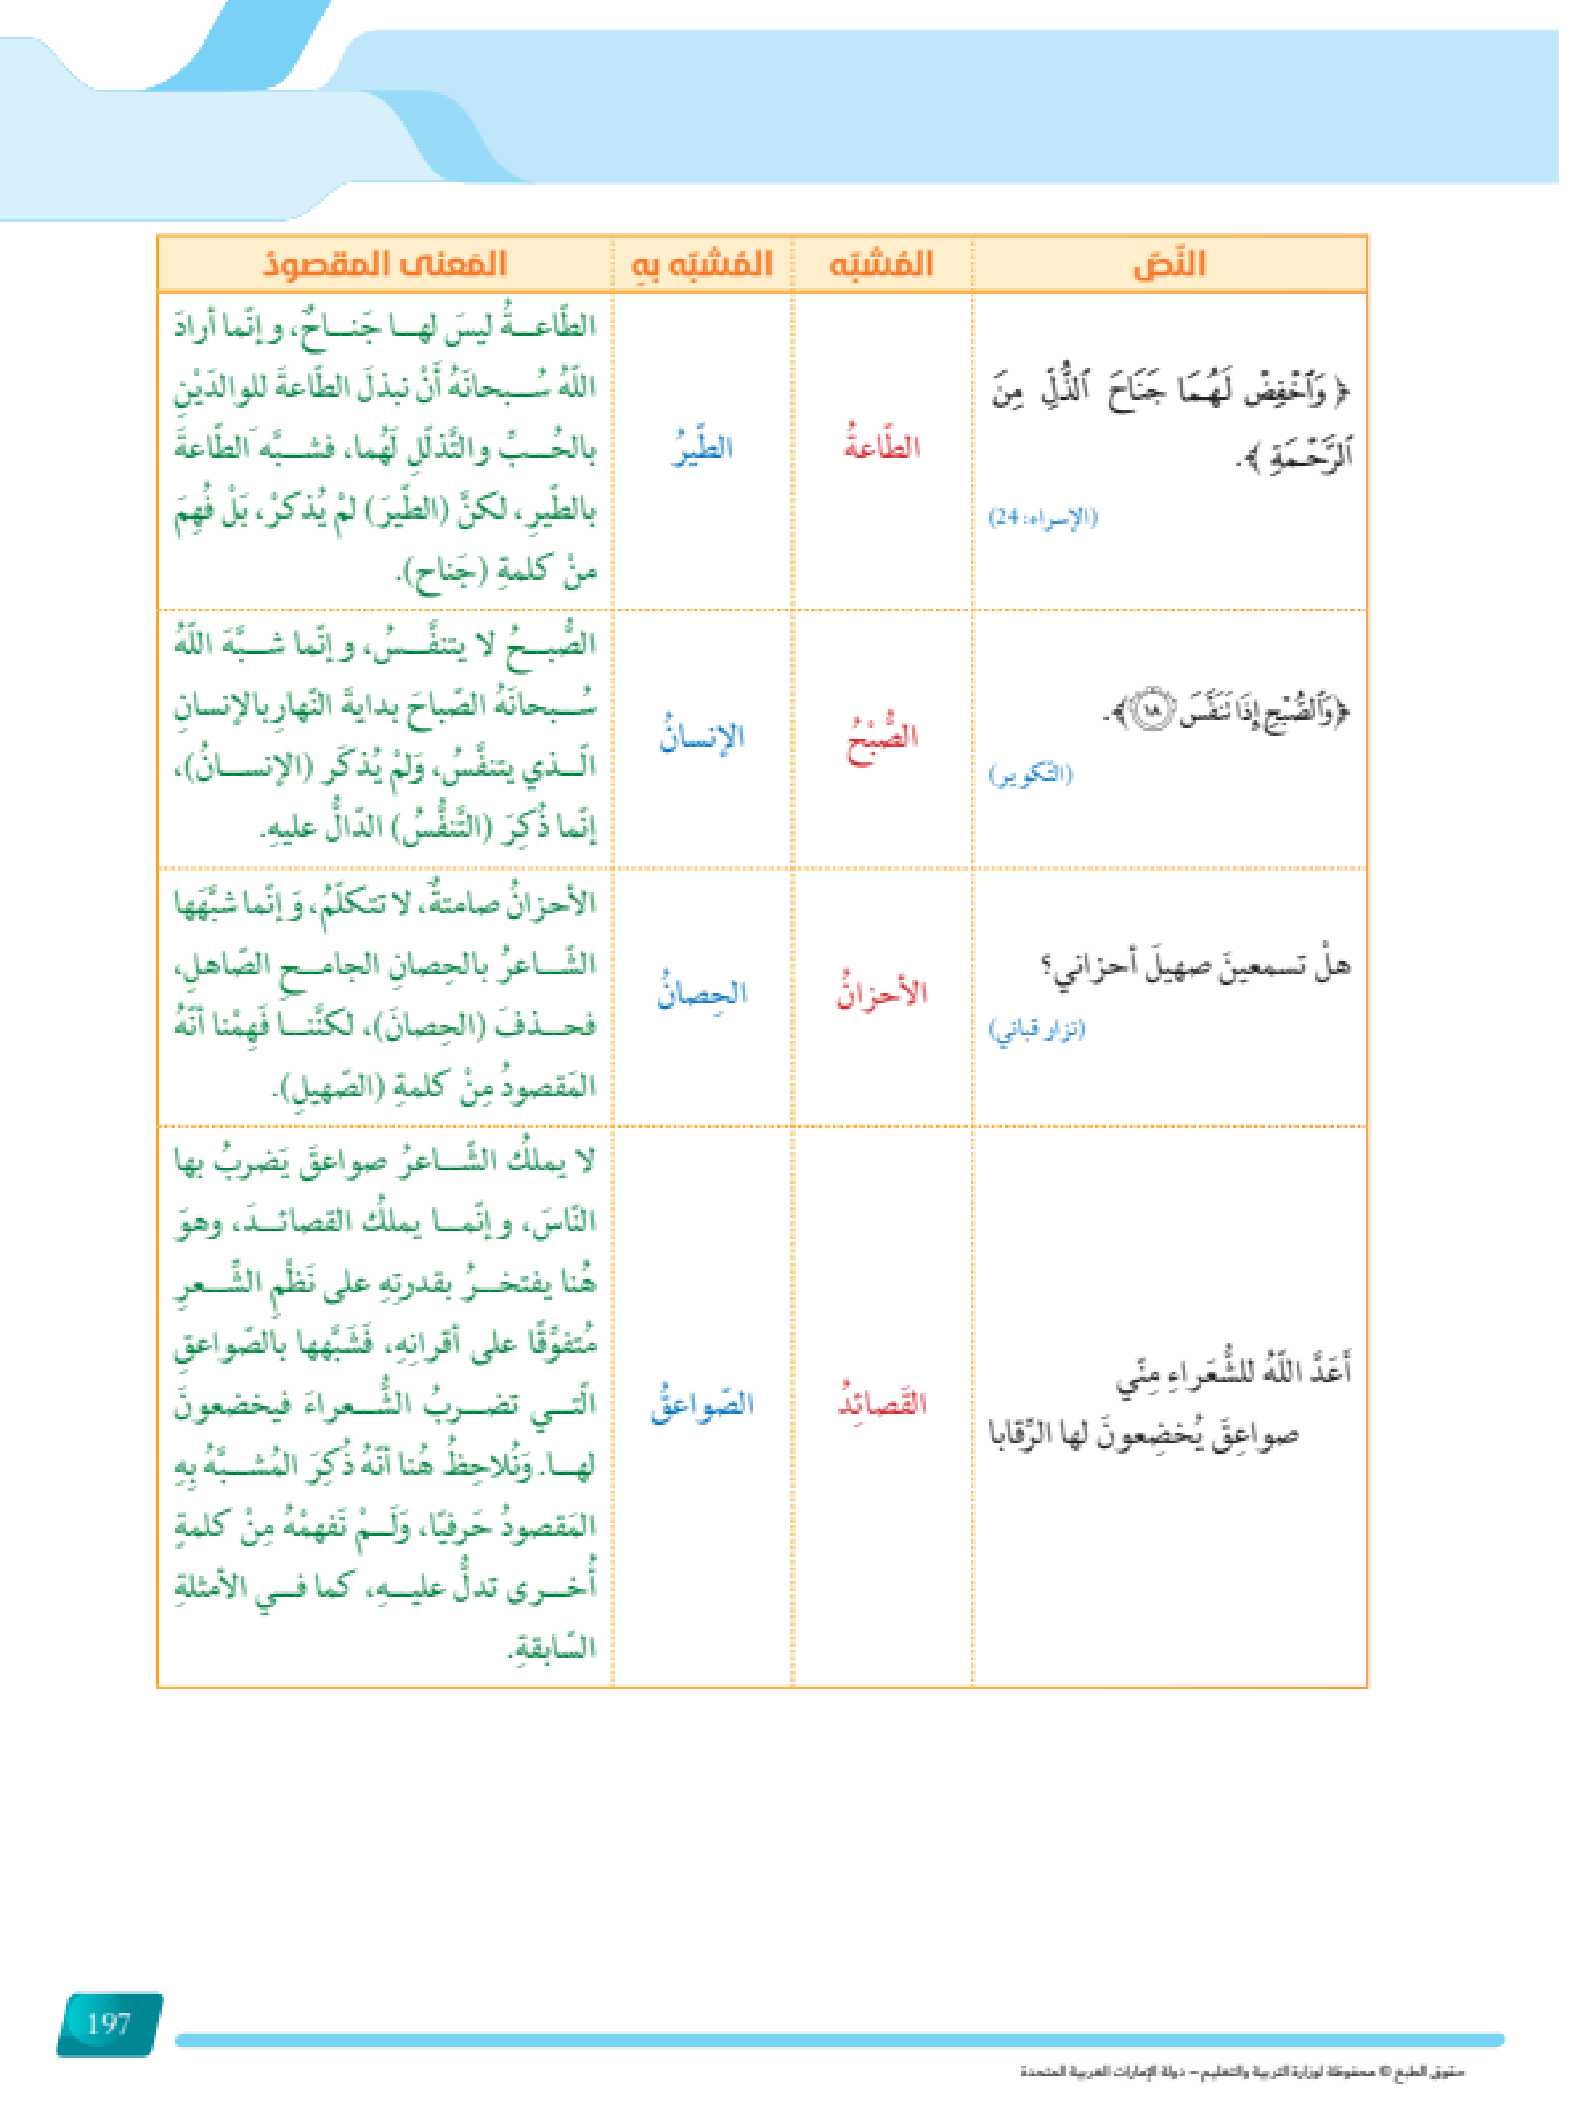 النّصّ	المُشبّه	المُشبّه بهِ	المَعنى المقصودُ
﴿ وَٱخْفِضْ لَهُمَا جَنَاحَ ٱلذُّلِّ مِنَ
ٱلرَّحْمَةِ ﴾.
(الإسراء: 24)
الطّاعةُ
الطّيرُ
الطّاعةُ ليسَ لها جَناحٌ، وإنّما أرادَ
اللّهُ سُبحانَهُ أَنْ نبذلَ الطّاعةَ للوالدَيْنِ
بالحُبِّ والتَّذلّلِ لَهُما، فشبَّه الطّاعةَ
بالطّيرِ، لكنَّ (الطّيرَ) لمْ يُذكرْ، بَلْ فُهِمَ
منْ كلمةِ (جَناح).
﴿وَٱلصُّبْحِ إِذَا نَنَفَّسَ ١٨﴾.
(التّكوير)
الصُّبْحُ
الإنسانُ
الصُّبحُ لا يتنفَّسُ، وإنّما شبَّهَ اللّهُ
سُبحانَهُ الصّباحَ بدايةَ النّهارِ بالإنسانِ
الّذي يتنفَّسُ، وَلمْ يُذكَر (الإنسانُ)،
إنّما ذُكِرَ (التَّنفُّسُ) الدّالُّ عليهِ.
هلْ تسمعينَ صهيلَ أحزاني؟
(نزار قباني)
الأحزانُ
الحِصانُ
الأحزانُ صامتةٌ، لا تتكلّمُ، وَإنّما شبَّهَها
الشّاعرُ بالحِصانِ الجامحِ الصّاهلِ،
فحذفَ (الحِصانَ)، لكنَّنا فَهِمْنا أنّهُ
المَقصودُ مِنْ كلمةِ (الصّهيلِ).
أَعَدَّ اللّهُ للشُّعَراءِ مِنّي
صواعِقَ يُخضِعونَ لها الرِّقابا
القَصائِدُ
الصّواعقُ
لا يملكُ الشّاعرُ صواعقَ يَضربُ بها
النّاسَ، وإنّما يملكُ القصائدَ، وهوَ
هُنا يفتخرُ بقدرتِهِ على نَظْمِ الشِّعرِ
مُتفوِّقًا على أقرانِهِ، فَشَبَّهها بالصّواعقِ
الّتي تضربُ الشُّعراءَ فيخضعونَ
لها. وَنُلاحِظُ هُنا أنّهُ ذُكِرَ المُشبَّهُ بِهِ
المَقصودُ حَرفيّا، وَلَمْ نَفهمْهُ مِنْ كلمةٍ
أُخرى تدلُّ عليهِ، كما في الأمثلةِ
السّابقةِ.
197
حقوق الطبع © محفوظة لوزارة التربية والتعليم – دولة الإمارات العربية المتحدة